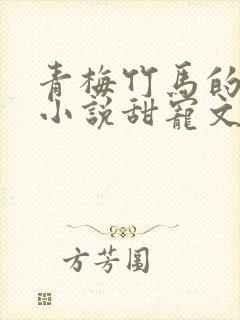 青梅竹馬的
小説甜寵文
方芳圓